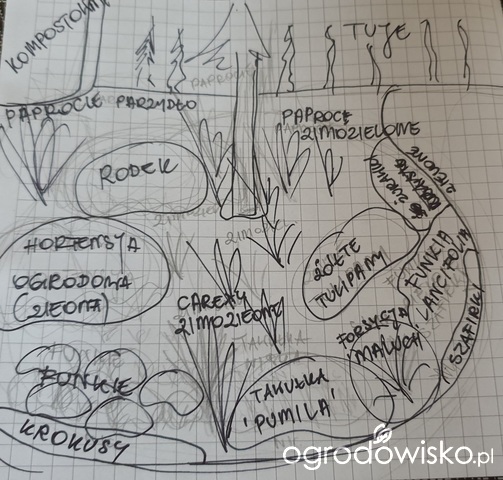 KOMPOSTOWNIK
TUJE
PAPROCIE
PAPROCIE PARZYDŁO
PAPROCE
ZIMOZIELONE
RODEK
ZIMOZIELONE
HORTENSJA
OGRODOWA
(ZIELONA)
CAREXY
ZIMOZIELONE
ŻÓŁTE
TULIPANY
FUNKIA
LANCIFOLIA
SZAFIRKI
FORSYCJA
'MALUCH'
TAWUŁKA
FUNKIE
TAWUŁKA
'PUMILA'
KROKUSY
ogrodowisko.pl